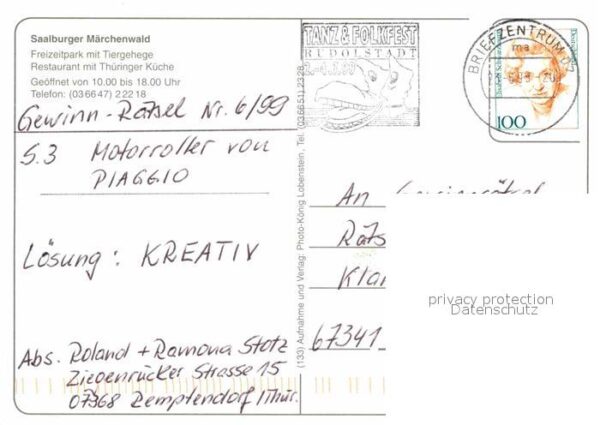 Saalburger Märchenwald
Freizeitpark mit Tiergehege
Restaurant mit Thüringer Küche
Geöffnet von 10.00 bis 18.00 Uhr
Telefon: (03 66 47) 2 22 18
Gewinn-Rätsel Nr. 6/99
S.3 Motorroller von
PIAGGIO
Lösung: KREATIV
Abs. Roland + Ramona Stotz
Ziegenrücker Strasse 15
07368 Remptendorf/Thür.
(133) Aufnahme und Verlag: Photo-König Lobenstein, Tel. (036651) 2328
TANZ & FOLKFEST
RUDOLSTADT
BRIEFZENTRUM 07
ma
100
An
Räts
Kla
67341
privacy protection
Datenschutz